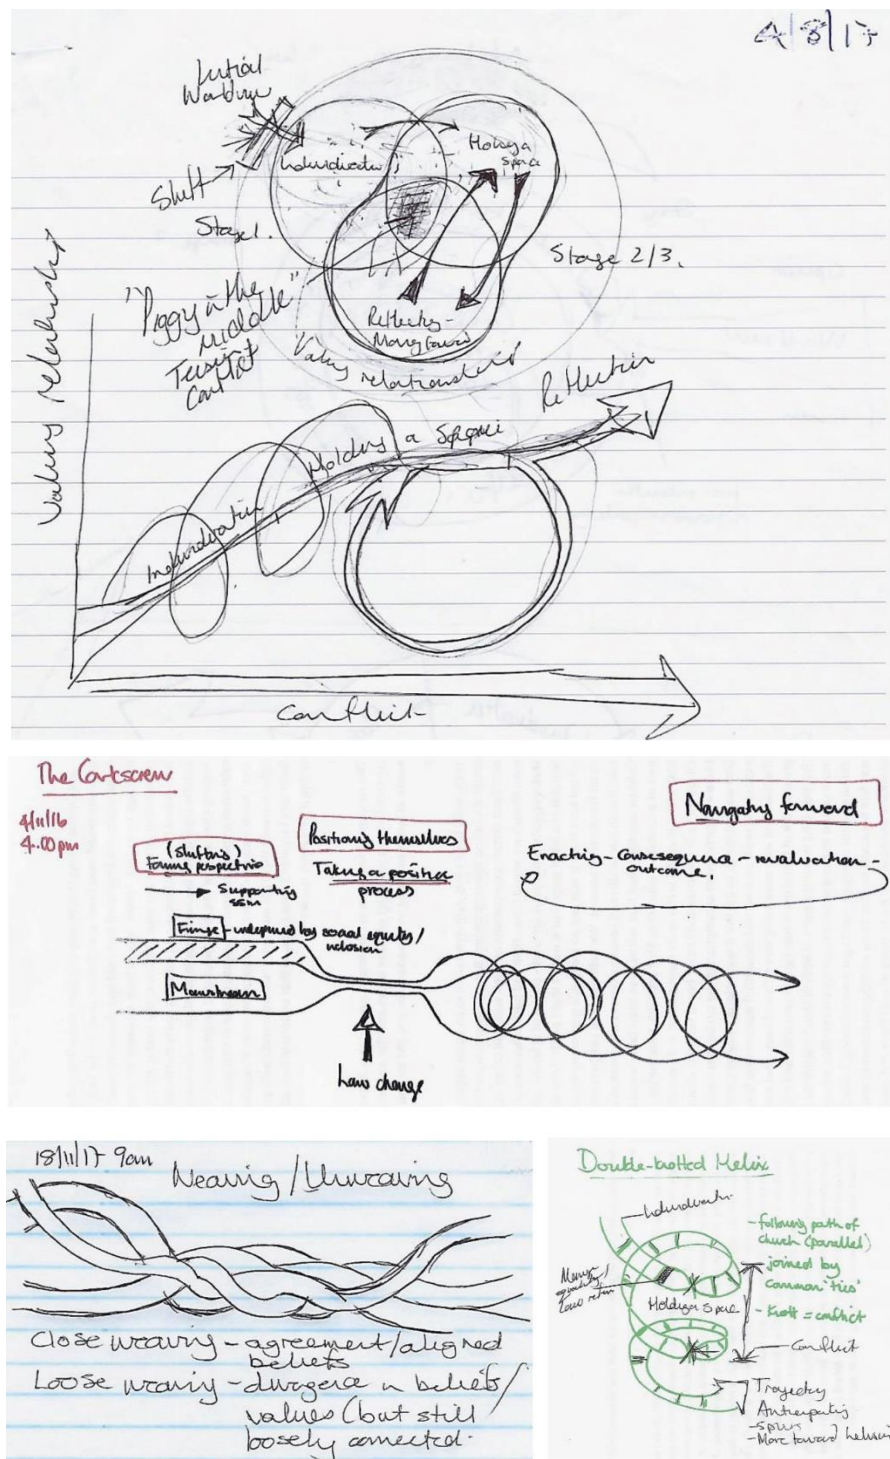 4/8/17
Initial
Shift
Individuation
Holding a
space
Stage 1.
Stage 2/3.
"Piggy in the
middle"
Tension
Conflict
Reflecting -
Moving forward
Valuing relationships
Valuing relationship
Individuation
Holding a space
Reflection
Conflict
The Corkscrew
4/11/16
4.00pm
(Shifting)
Forming perspective
Supporting
SSM
Positioning themselves
Taking a position
process
Navigating forward
Enacting - consequence - revaluation -
outcome.
Fringe - underpinned by social equity/
inclusion
Mainstream
Law change
18/11/17 9am
Weaving/Unweaving
Close weaving - agreement/aligned
beliefs
Loose weaving - divergence in beliefs/
values (but still
loosely connected.
Double-knotted Helix
Individuation
- following path of
church (parallel)
joined by
common 'ties'
- Knot = conflict
Marriage
equality/
law reform
Holding a space
Conflict
Trajectory
Anticipating
- Move toward